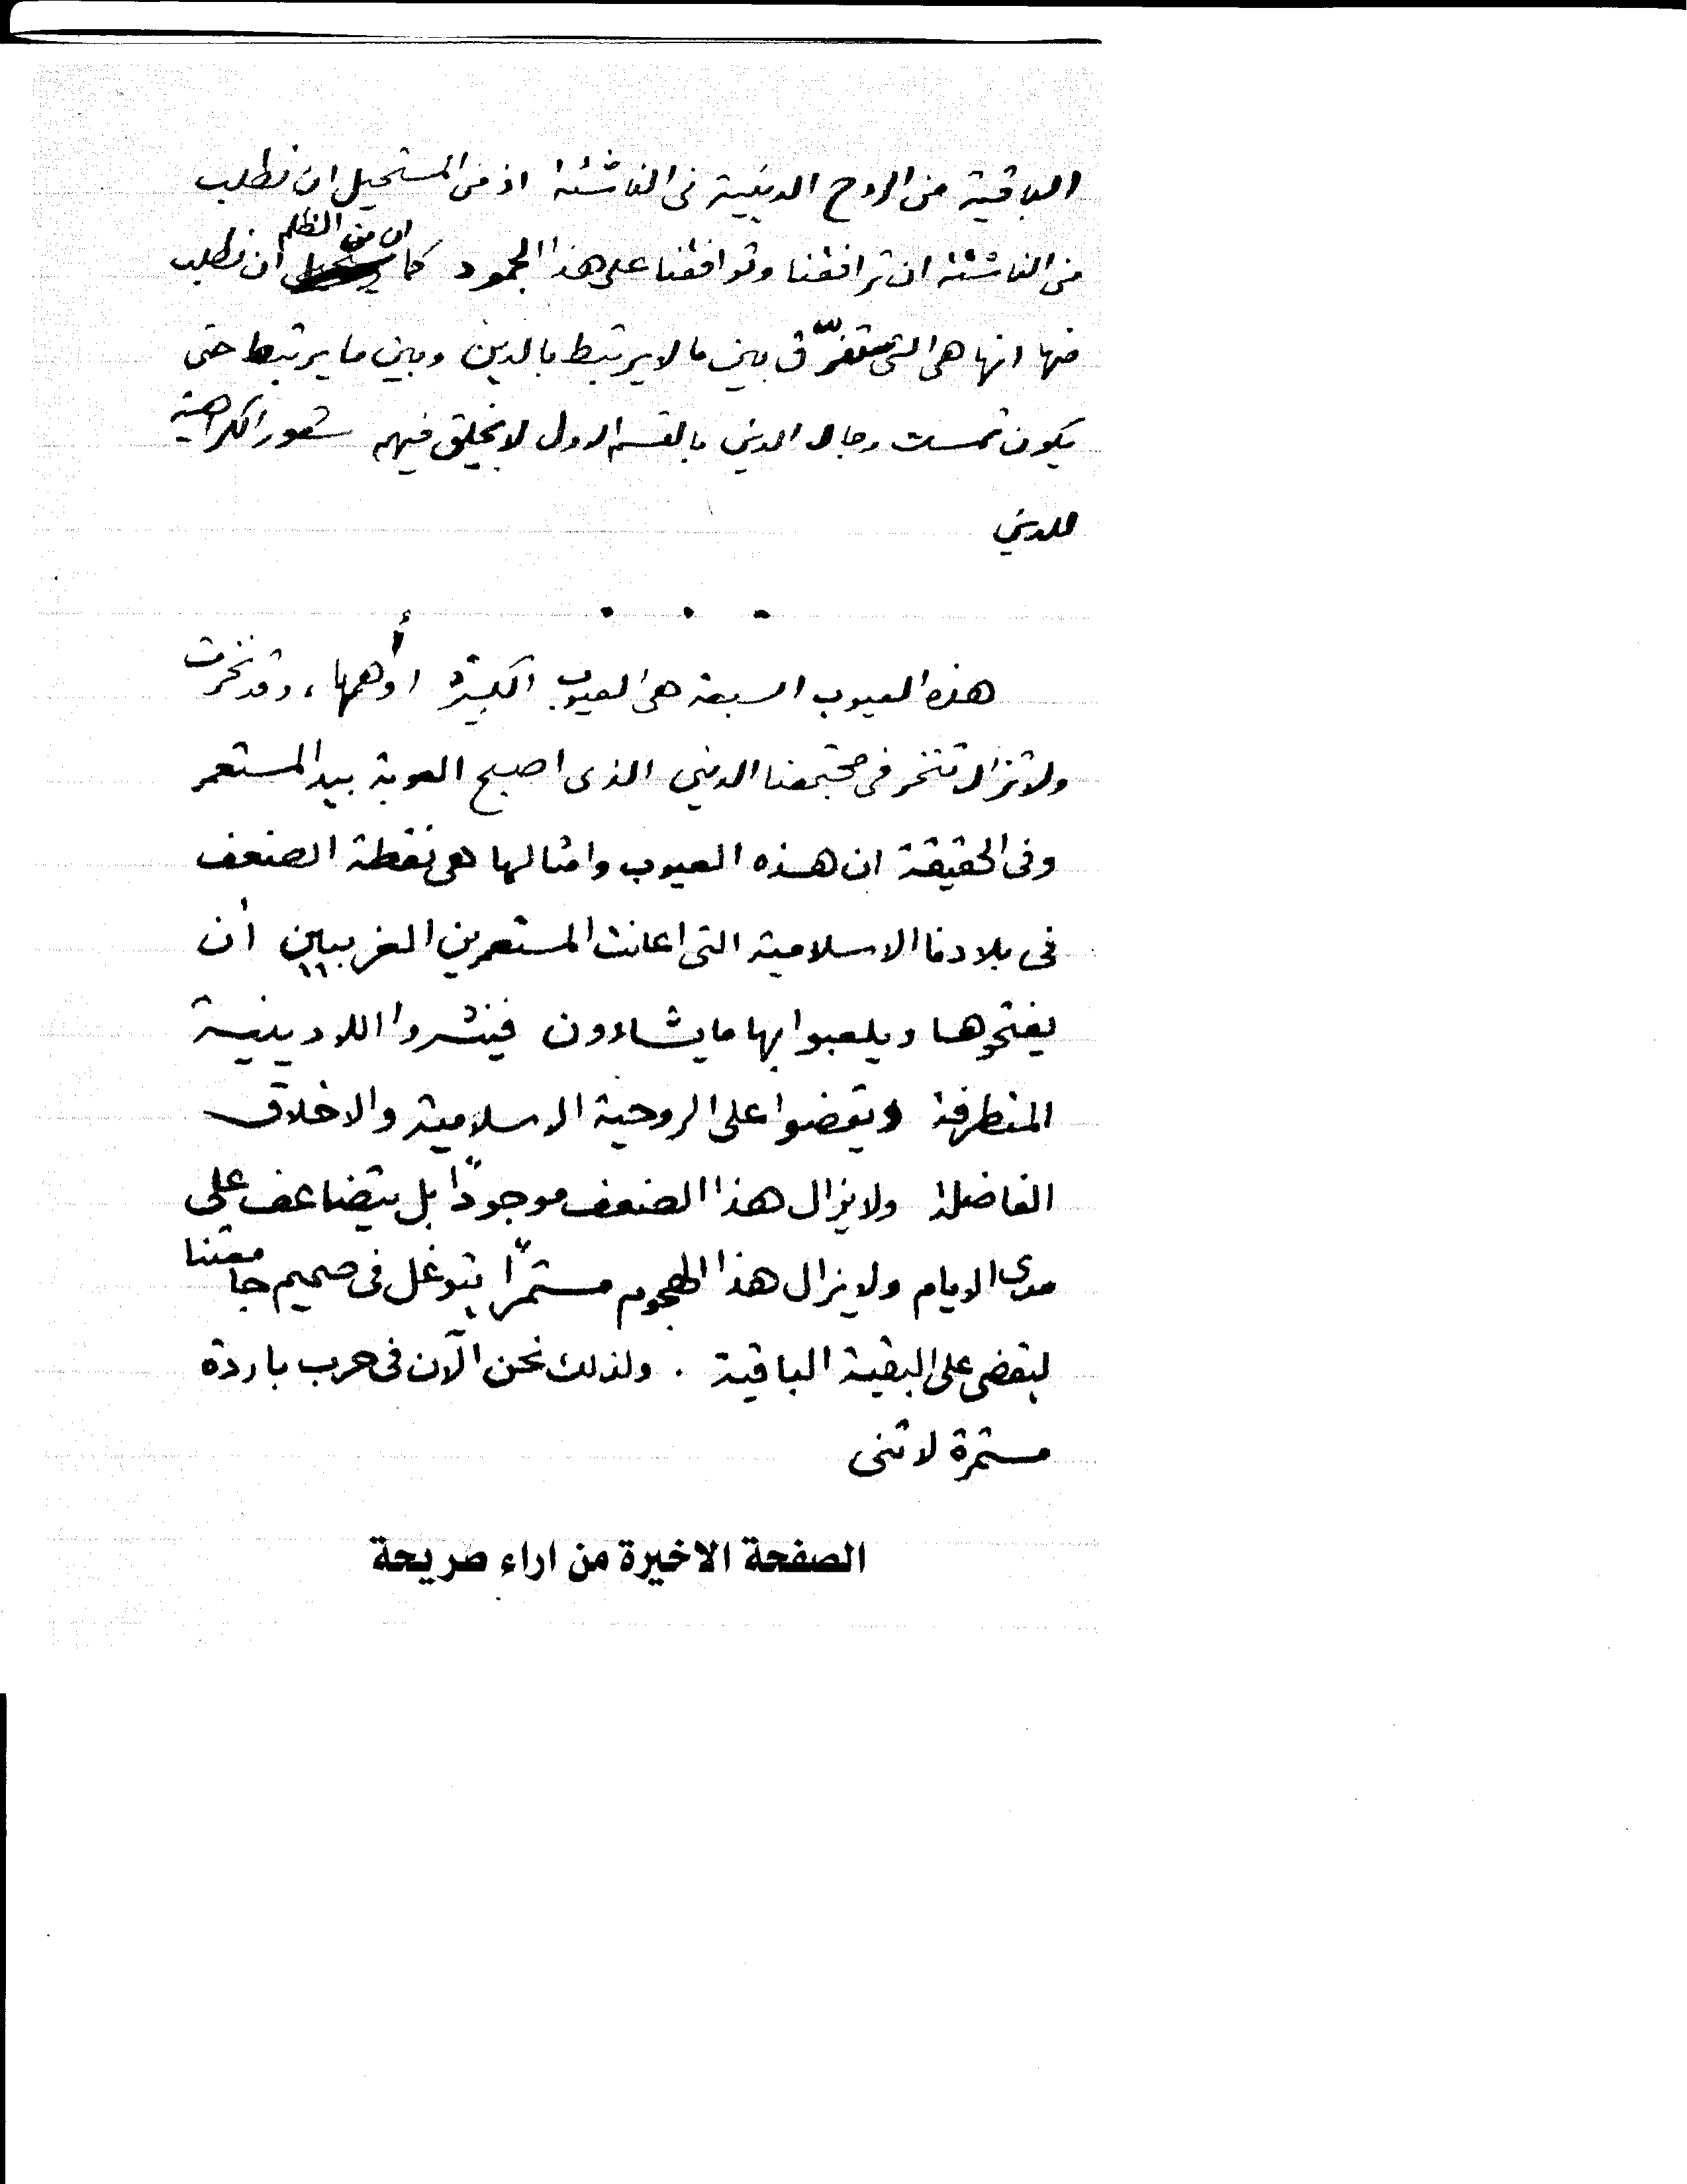 الباقية من الروح الدينية في الناشئة اذ من المستحيل ان نطلب
من الناشئة ان ترافقنا وتوافقنا على هذا الجمود كما ان من الظلم ان نطلب
منها انها هي التي ستفرّق بين ما لا يرتبط بالدين وبين ما يرتبط حتى
يكون تمسك رجال الدين بالقسم الاول لا يخلق فيهم شعور الكراهية
للدين
. . .
هذه العيوب السبعة هي العيوب الكبيرة أو أهمها، وقد نخرت
ولا تزال تنخر في مجتمعنا الديني الذي اصبح العوبة بيد المستعمر
وفي الحقيقة ان هذه العيوب وامثالها هي نقطة الضعف
في بلادنا الاسلامية التي اعانت المستعمرين الغربيين أن
يفتحوها ويلعبوا بها ما يشاءون فينشروا اللادينية
المتطرفة ويقضوا على الروحية الاسلامية والاخلاق
الفاضلة ولا يزال هذا الضعف موجوداً بل يتضاعف على
مدى الايام ولا يزال هذا الهجوم مستمرّاً يتوغل في صميم جامعتنا
ليقضي على البقية الباقية . ولذلك نحن الآن في حرب باردة
مستمرة لا تنى
الصفحة الاخيرة من اراء صريحة